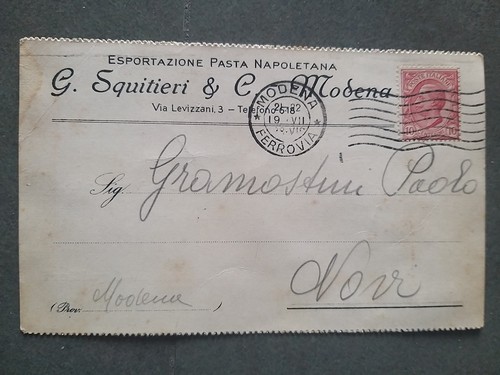 ESPORTAZIONE PASTA NAPOLETANA
G. Squitieri & C. - Modena
Via Levizzani, 3 - Telefono 6-18
MODENA
FERROVIA
19 VII
Sig. Gramostini Paolo
Novi
(Prov. Modena )